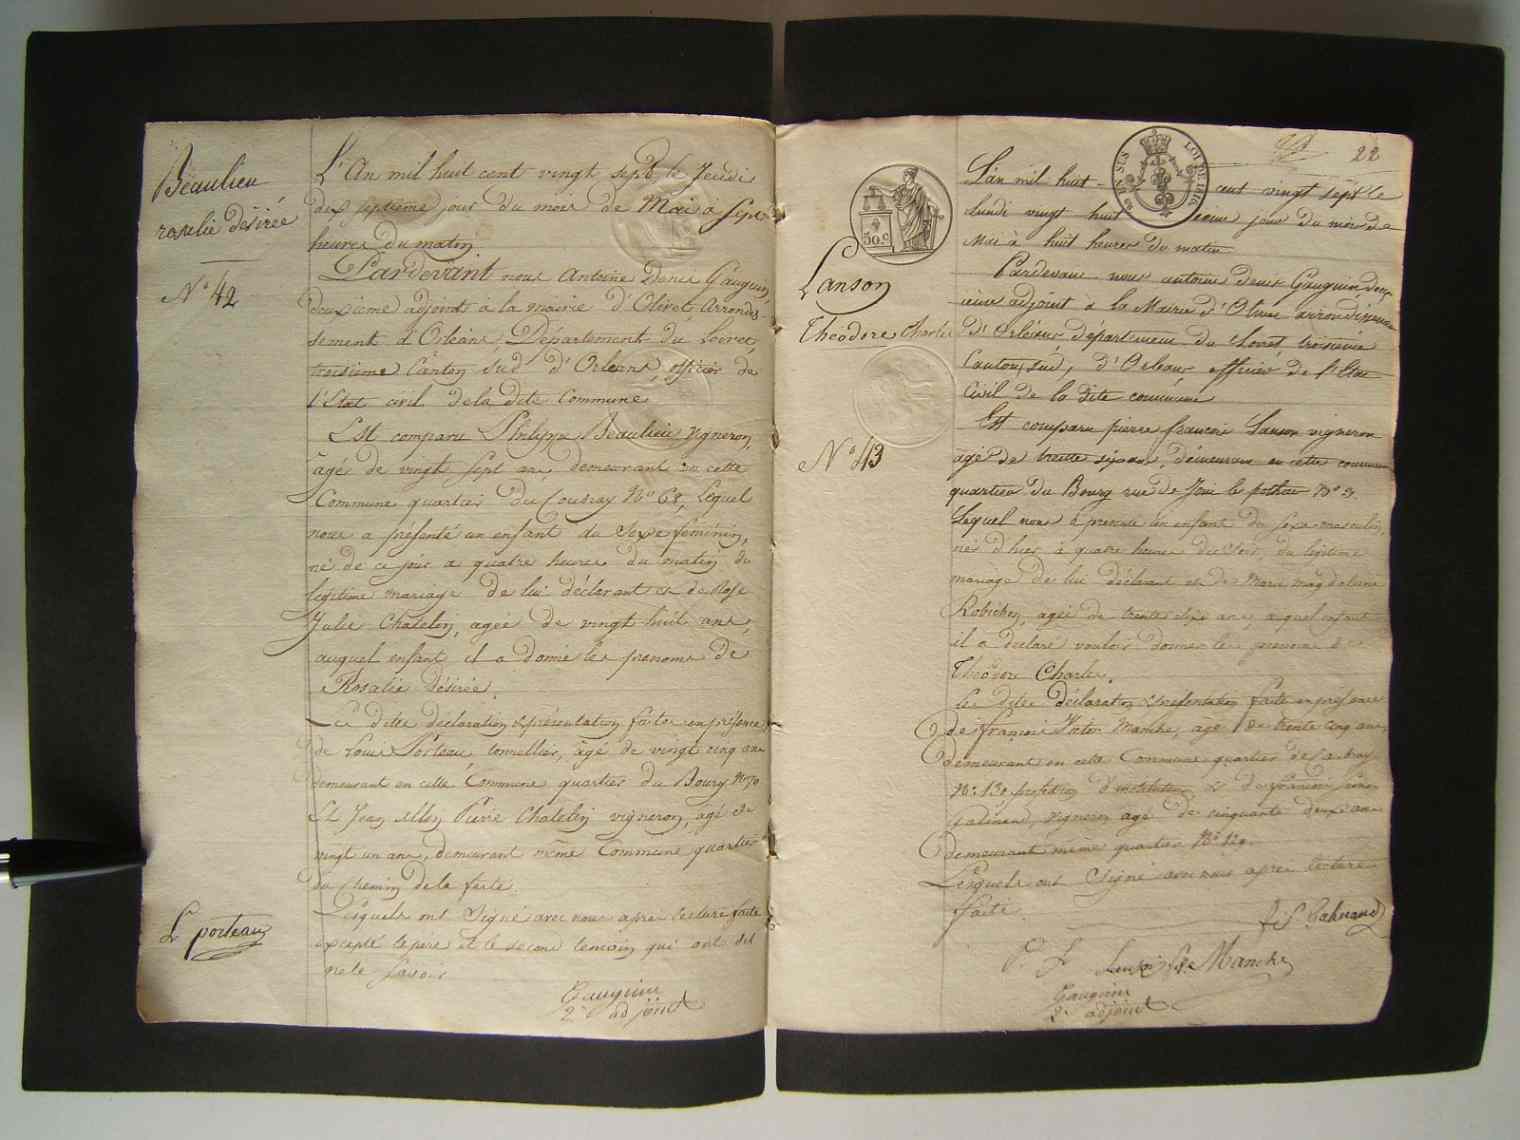 Beaulieu
rosalie désirée
N° 42
L'An mil huit cent vingt sept le Jeudi
dix septieme jour du mois de Mai à Sept
heures du matin
Pardevant nous Antoine Denis Gauguin,
deuxième adjoint à la mairie d'Olivet, Arrondis-
sement d'Orléans, Département du Loiret,
troisieme Canton Sud d'Orléans, officier de
l'Etat civil de la dite Commune
Est comparu Philippe Beaulieu vigneron,
âgé de vingt sept ans, demeurant en cette
Commune quartier du Cousray N° 68, Lequel
nous a présenté un enfant du Sexe féminin,
né de ce jour a quatre heures du matin du
légitime mariage de lui déclarant et de Rose
Julie Chatelin, agée de vingt huit ans,
auquel enfant il a donné les prenoms de
Rosalie Désirée.
Ce dite déclaration et présentation faites en présence
de Louis Porteau, tonnellier, âgé de vingt cinq ans
demeurant en cette Commune quartier du Bourg N° 70
Et Jean Pierre Chatelin vigneron, agé de
vingt un ans, demeurant même Commune quartier
du Chemin de la ferté.
Lesquels ont Signé avec nous apres lecture faite
excepté le pere et le second temoin qui ont dit
ne le savoir
L porteau
Gauguin
2e adjoint
22
30 c
EN SUS
LOI DE 1816
Lanson
Théodore Charles
N° 43
L'an mil huit cent vingt sept le
Lundi vingt huit ieme jour du mois de
Mai à huit heures du matin
Pardevant nous antoine denis Gauguin deux
ieme adjoint à la Mairie d'Olivet arrondissement
d'Orléans, département du Loiret troisieme
Canton, sud, d'Orléans officier de l'Etat
Civil de la dite commune
Est comparu pierre francois Lanson vigneron
agé de trente six ans, demeurant en cette commune
quartier du Bourg rue de N° 3.
Lequel nous à presenté un enfant du sexe masculin,
né d'hier à quatre heures du soir, du légitime
mariage de lui déclarant et de Marie magdeleine
Robichon, agée de trente six ans, auquel enfant
il a déclaré vouloir donner les prenoms de
Théodore Charles.
Les dites déclaration et présentation faite en présence
de françois Victor Manche, agé de trente cinq ans,
demeurant en cette Commune quartier de
N° 130 profession d'instituteur et de
vigneron agé de cinquante deux ans
demeurant même quartier N° 120.
Lesquels ont signé avec nous apres lecture
faite.
P. f Lanson Manche
Gauguin
2e adjoint